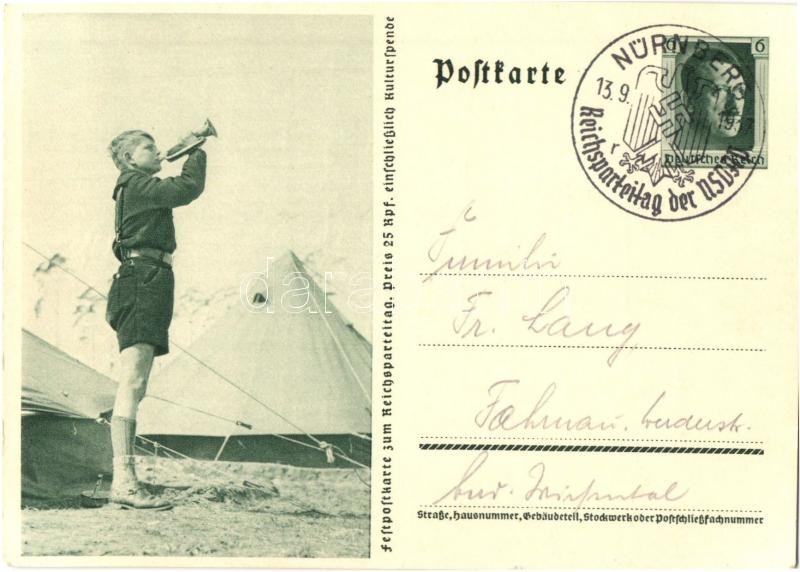 Postkarte
6 6
Deutsches Reich
NÜRNBERG
13.9. 1937
r
Reichsparteitag der NSDAP
Festpostkarte zum Reichsparteitag. Preis 25 Rpf. einschließlich Kulturspende
darabanth
Familie
Fr. Lang
Fahrnau. Werderstr.
Straße, Hausnummer, Gebäudeteil, Stockwerk oder Postschließfachnummer